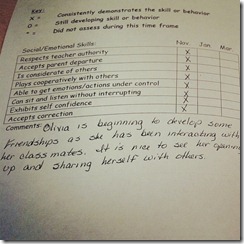 Key:
X = Consistently demonstrates the skill or behavior
O = Still developing skill or behavior
* = Did not assess during this time frame
Social/Emotional Skills: Nov. Jan. Mar.
Respects teacher authority X
Accepts parent departure X
Is considerate of others X
Plays cooperatively with others X
Able to get emotions/actions under control X
Can sit and listen without interrupting X
Exhibits self confidence X
Accepts correction X
Comments: Olivia is beginning to develop some
Friendships as she has been interacting with
her classmates. It is nice to see her opening
up and sharing herself with others.